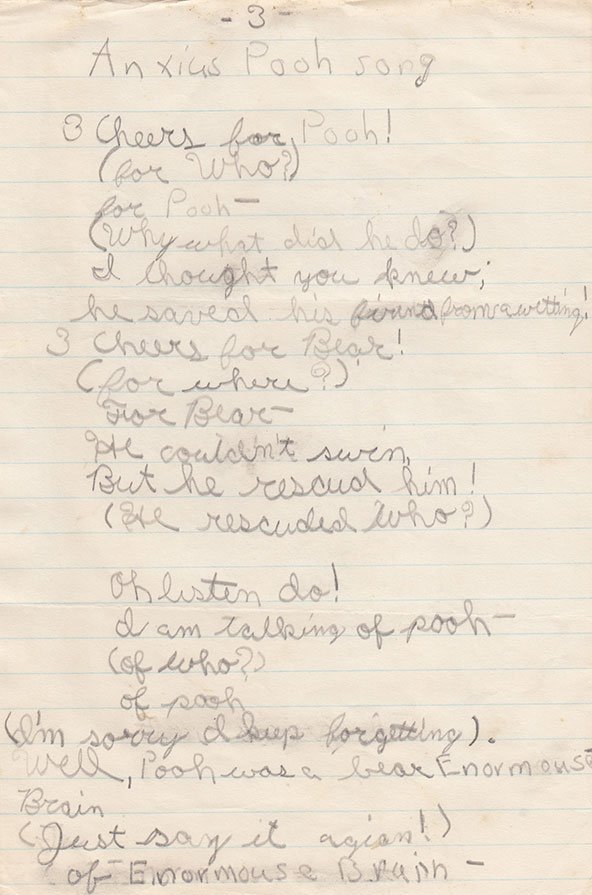 - 3 -
Anxius Pooh song
3 Cheers for Pooh!
(for Who?)
for Pooh—
(Why what did he do?)
I thought you knew;
he saved his firend from a wetting!
3 Cheers for Bear!
(for where?)
For Bear—
He couldn't swim,
But he rescud him!
(He rescuded who?)
Oh listen do!
I am talking of pooh—
(of who?)
of pooh
(I'm sorry I keep forgetting).
Well, Pooh was a bear Enormouse
Brain
(Just say it agian!)
of Enormouse Brain—